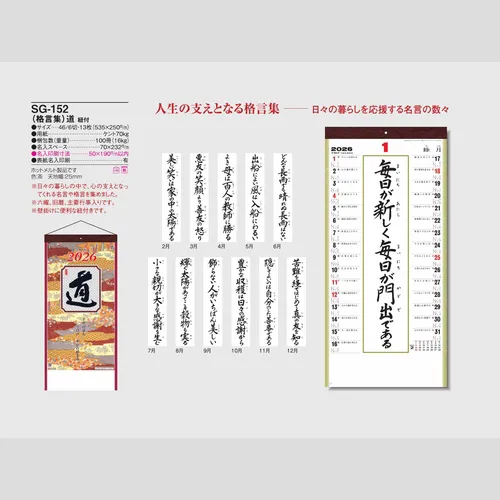 SG-152
(格言集) 道 紐付
●サイズ…46/6切・13枚(535×250㎜)
●用紙…ケント70kg
●梱包数(重量)…100冊(16kg)
●名入スペース…70×232㎜
●名入印刷寸法…50×190㎜以内
●表紙名入印刷…有
ホットメルト製品です
色/茶 天地幅25mm
※日々の暮らしの中で、心の支えとなっ
てくれる名言や格言を集めました。
※六曜、旧暦、主要行事入りです。
※壁掛けに便利な紐付きです。
2026
道
人生の支えとなる格言集
日々の暮らしを応援する名言の数々
美しい笑いは家の中の太陽である
2月
悪友の笑顔より善友の怒り
3月
よき母は百人の教師に勝る
4月
出船によい風は入船にわるい
5月
どんな長雨も晴れぬ長雨はない
6月
小さな親切が大きな感謝を生む
7月
8月
飾らない人がいちばん美しい
9月
豊かな収穫は日々の感謝から
10月
11月
12月
2026
1
睦月
毎日が新しく毎日が門出である
1
2
3
4
5
6
7
8
9
10
11
12
13
14
15
16
17
18
19
20
21
22
23
24
25
26
27
28
29
30
31